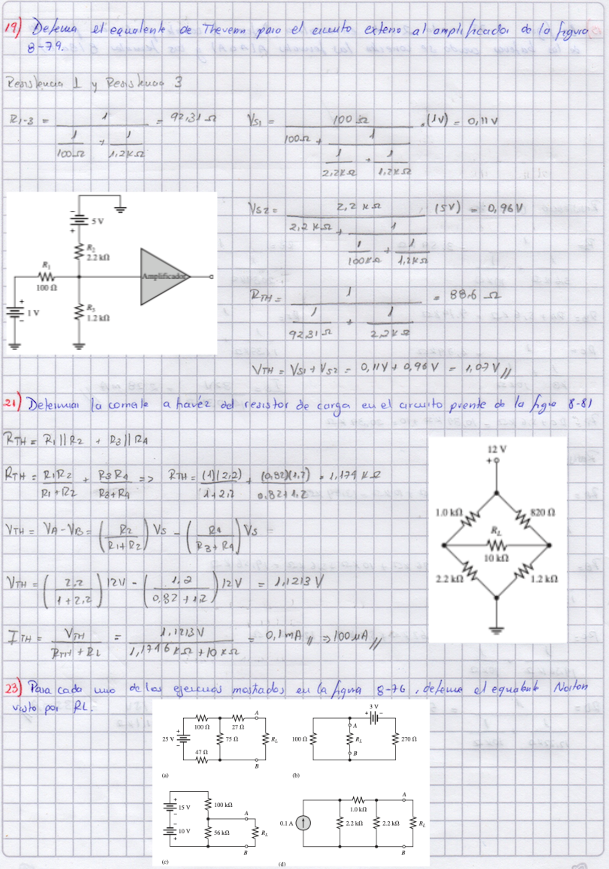 19) Determina el equivalente de Thevenin para el circuito externo al amplificador de la figura
8-79.
Resistencia 1 y Resistencia 3
R1-3 = 1 / (1/100Ω + 1/1,2KΩ) = 92,31 Ω
VS1 = 100 Ω / (100Ω + 1 / (1/2,2KΩ + 1/1,2KΩ)) . (1V) = 0,11 V
VS2 = 2,2 KΩ / (2,2 KΩ + 1 / (1/100KΩ + 1/1,2KΩ)) (5V) = 0,96V
RTH = 1 / (1/92,31Ω + 1/2,2KΩ) = 88,6 Ω
VTH = VS1 + VS2 = 0,11V + 0,96 V = 1,07V //
5 V
R2
2.2 kΩ
R1
100 Ω
Amplificador
R3
1.2 kΩ
1 V
21) Determinar la corriente a travéz del resistor de carga en el circuito puente de la figura 8-81
RTH = R1 || R2 + R3 || R4
RTH = R1R2 / (R1+R2) + R3R4 / (R3+R4) => RTH = (1)(2,2) / (1+2,2) + (0,82)(1,2) / (0,82+1,2) = 1,174 KΩ
VTH = VA - VB = (R2 / (R1+R2)) VS - (R4 / (R3+R4)) VS =
VTH = (2,2 / (1+2,2)) 12V - (1,2 / (0,82+1,2)) 12V = 1,1213 V
ITH = VTH / (RTH + RL) = 1,1213V / (1,1746 KΩ + 10 KΩ) = 0,1 mA // => 100 μA //
12 V
1.0 kΩ
820 Ω
RL
10 kΩ
2.2 kΩ
1.2 kΩ
23) Para cada uno de los ejercicios mostrados en la figura 8-76, determine el equivalente Norton
visto por RL.
100 Ω
27 Ω
A
25 V
75 Ω
RL
47 Ω
B
(a)
3 V
A
100 Ω
RL
270 Ω
B
(b)
15 V
100 kΩ
A
10 V
56 kΩ
RL
B
(c)
1.0 kΩ
A
0.1 A
2.2 kΩ
2.2 kΩ
RL
B
(d)